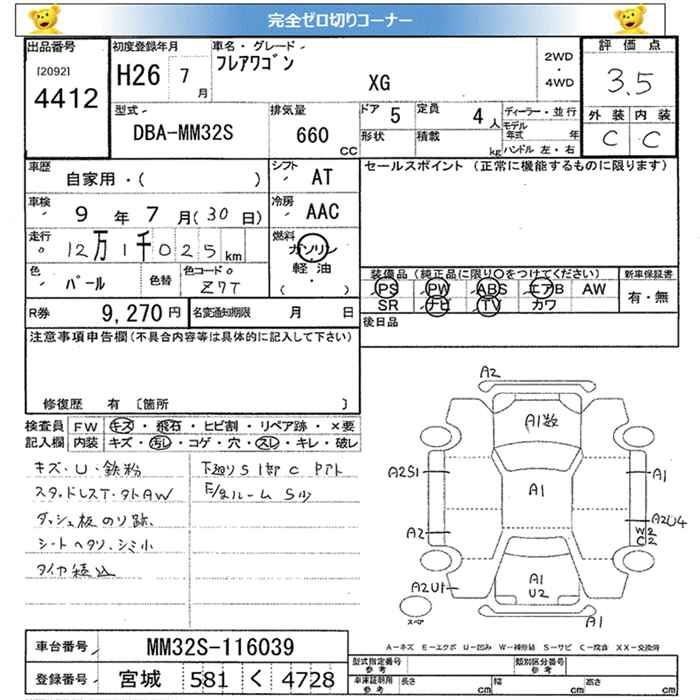 完全ゼロ切りコーナー
出品番号
[2092]
4412
初度登録年月
H26 7 月
車名・グレード
フレアワゴン
XG
2WD
・
4WD
評価点
3.5
外装 内装
C C
型式
DBA-MM32S
排気量
660
CC
ドア 5
定員 4 人
形状
積載 kg
ディーラー・並行
モデル年式 年
ハンドル 左・右
車歴
自家用・( )
シフト AT
車検
9 年 7 月(30 日)
冷房 AAC
走行
12万1千025 km
燃料
ガソリン
軽油
( )
色
パール
色替
色コード
Z7T
R券 9,270 円
名変通知期限 月 日
セールスポイント (正常に機能するものに限ります)
装備品 (純正品に限り〇をつけてください)
新車保証書
PS PW ABS エアB AW
有・無
SR ナビ TV カワ
後日品
注意事項申告欄(不具合内容等は具体的に記入して下さい)
修復歴 有 〔箇所 〕
検査員記入欄
FW キズ・飛石・ヒビ割・リペア跡・×要
内装 キズ・汚し・コゲ・穴・スレ・キレ・破レ
キズ・U・鉄粉
スタッドレスT・タトAW
ダッシュ板のり跡
シートヘタリ、シミ小
タイヤ積込
下廻りS1部C
S少
A2
A1数
A1
A2S1
A1
A2
A2U4
W2
C2
A2U1
A1
U2
A1
スペア
A-キズ E-エクボ U-凹み W-補修跡 S-サビ C-腐食 XX-交換済
車台番号 MM32S-116039
登録番号 宮城 581 く 4728
型式指定番号
参考
類別区分番号
参考
車庫証明用
参考
長さ cm
幅 cm
高さ cm